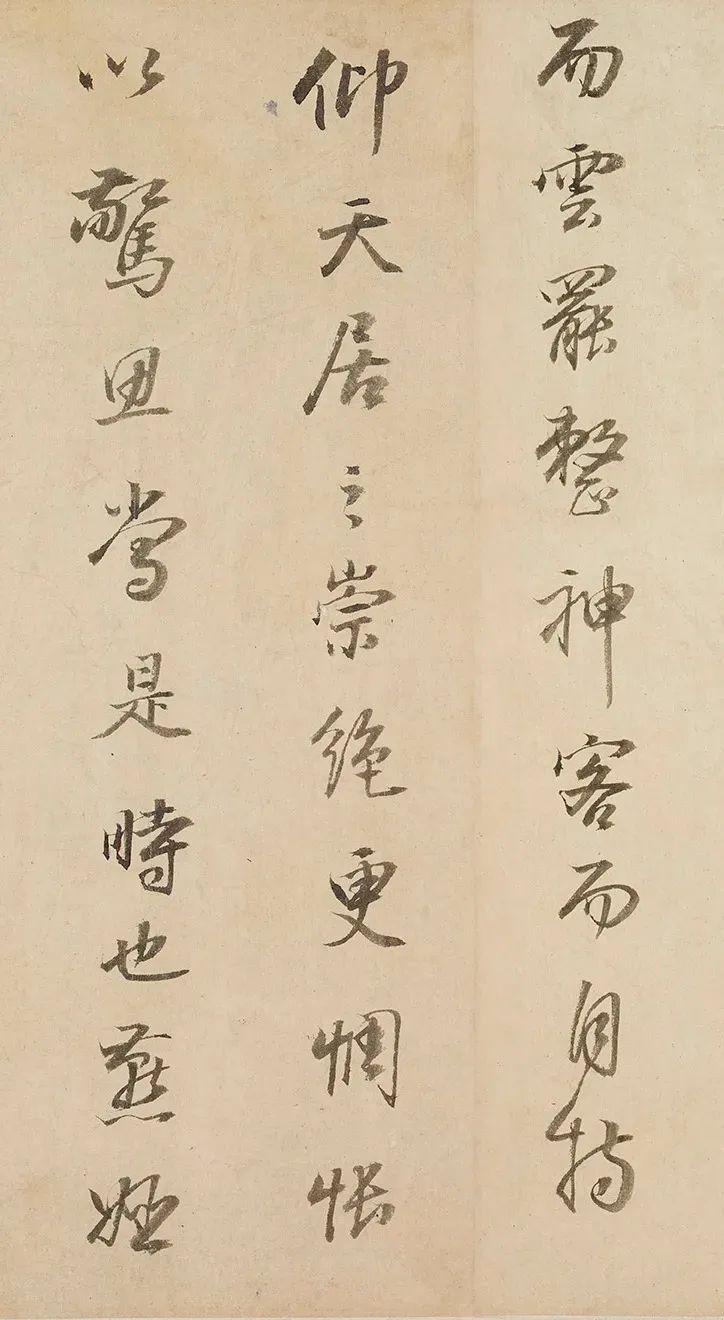 而雲罷整神容而自持
仰天居之崇絶更惆悵
以驚思當是時也燕姬